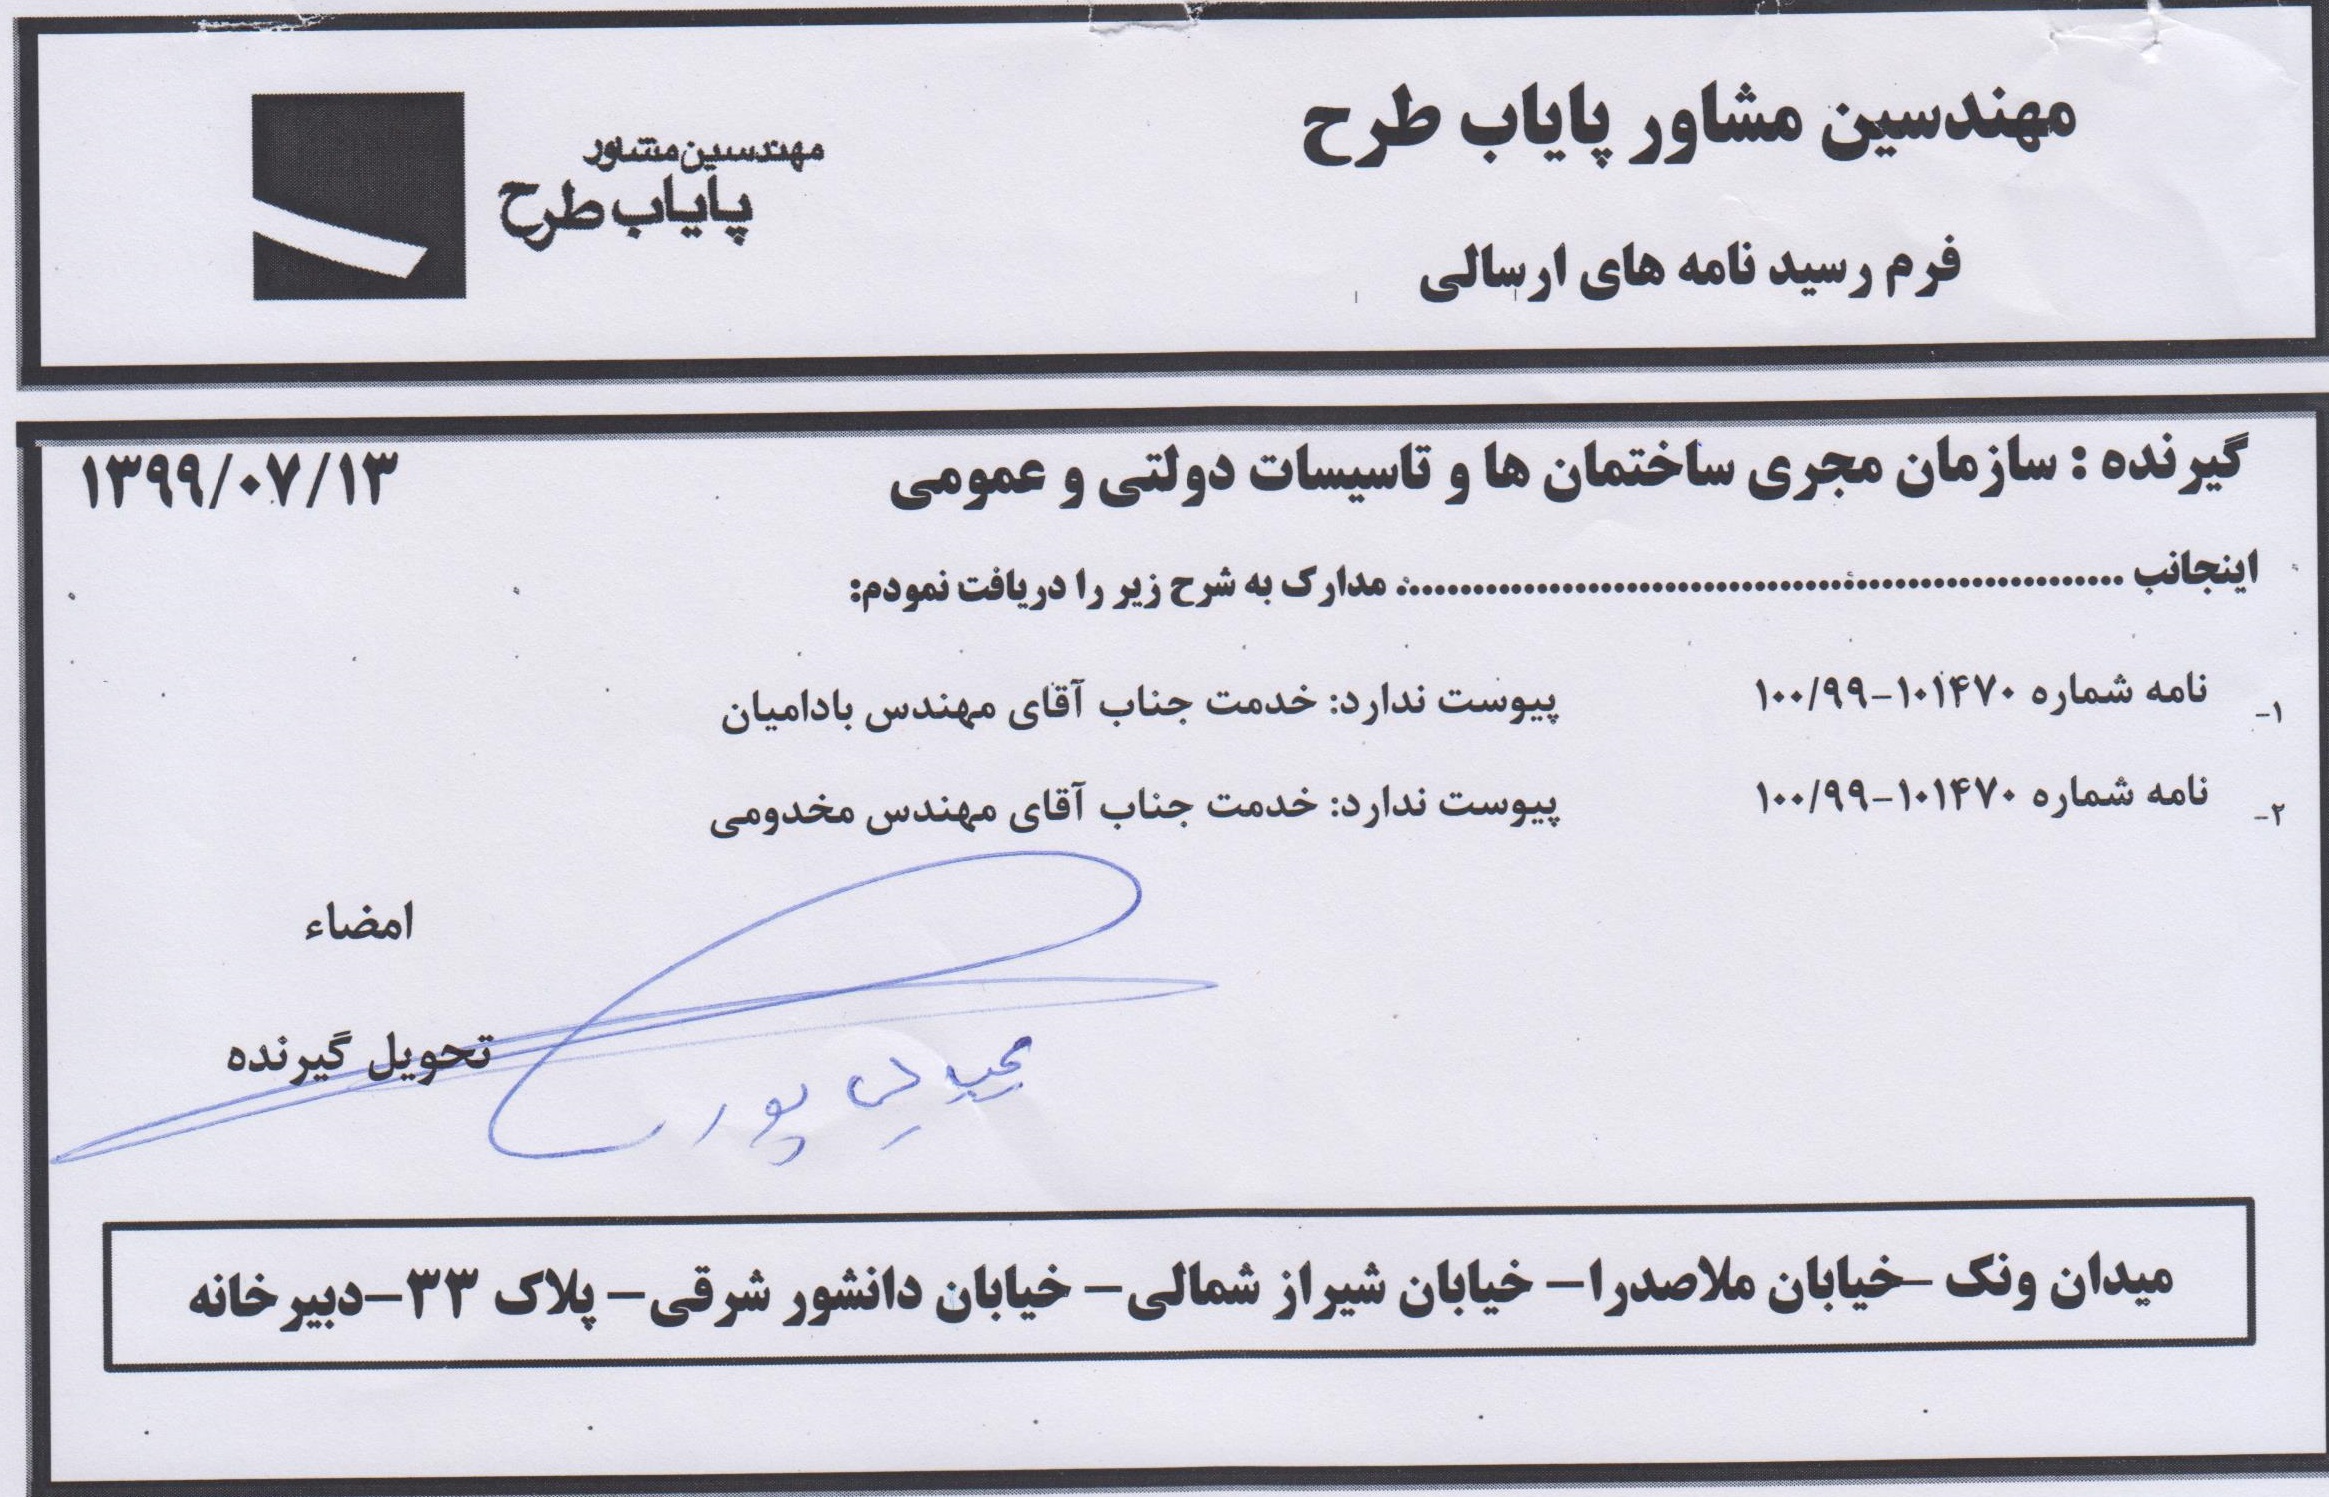 مهندسین مشاور پایاب طرح
مهندسین مشاور
پایاب طرح
فرم رسید نامه های ارسالی
گیرنده : سازمان مجری ساختمان ها و تاسیسات دولتی و عمومی
۱۳۹۹/۰۷/۱۳
اینجانب ................................................................ مدارک به شرح زیر را دریافت نمودم:
۱- نامه شماره ۱۰۱۴۷۰-۱۰۰/۹۹ پیوست ندارد: خدمت جناب آقای مهندس بادامیان
۲- نامه شماره ۱۰۱۴۷۰-۱۰۰/۹۹ پیوست ندارد: خدمت جناب آقای مهندس مخدومی
امضاء
تحویل گیرنده
پور
میدان ونک -خیابان ملاصدرا- خیابان شیراز شمالی- خیابان دانشور شرقی- پلاک ۳۳-دبیرخانه